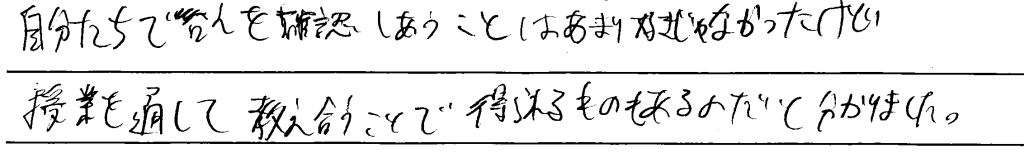 自分たちで答えを確認しあうことはあまり好きじゃなかったけど
授業を通して教え合うことで得られるものもあるのだと分かりました。